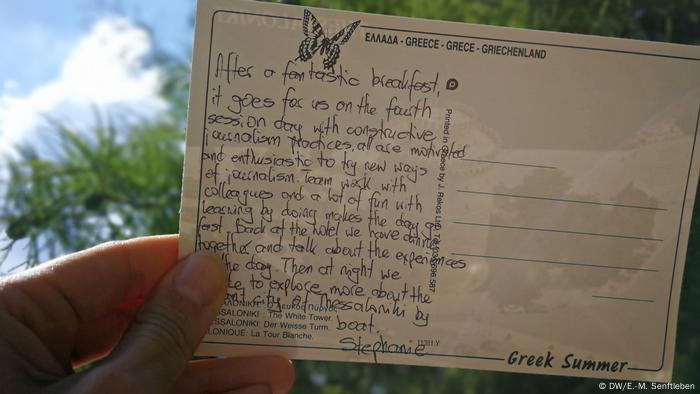 ΕΛΛΑΔΑ - GREECE - GRECE - GRIECHENLAND
After a fantastic breakfast,
it goes for us on the fourth
session day with constructive
journalism practices, all are motivated
and enthusiastic to try new ways
of journalism. Team work with
colleagues and a lot of fun with
learning by doing makes the day go
fast. Back at the hotel we have dinner
together and talk about the experiences
the day. Then at night we
to explore more about the
city of Thessaloniki by
boat.
Stephanie
Printed in Greece by J. Rekos Ltd.
: The White Tower.
: Der Weisse Turm.
: La Tour Blanche.
Greek Summer
© DW/E.-M. Senftleben